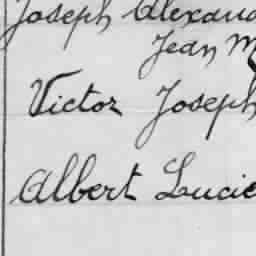 Joseph Alexand
Jean M
Victor Joseph
Albert Lucie